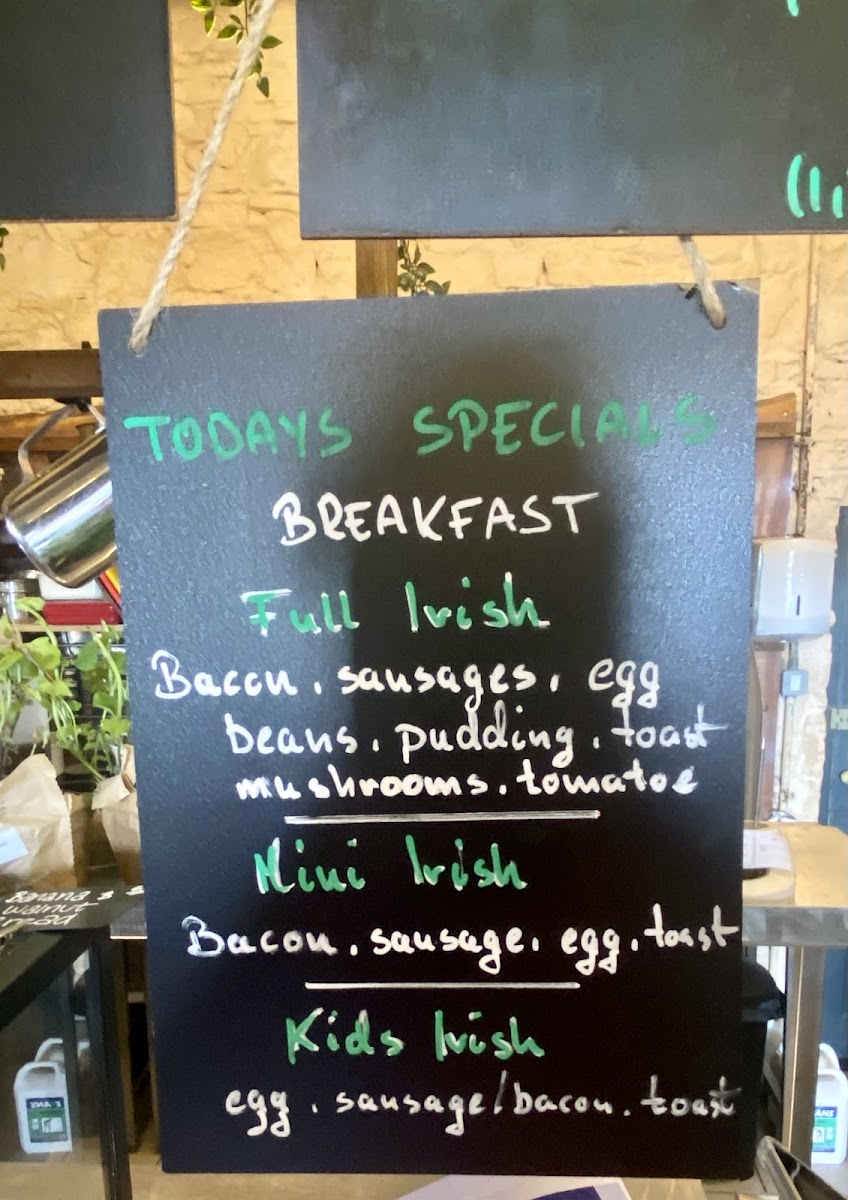 TODAYS SPECIALS
BREAKFAST
Full Irish
Bacon. sausages. egg
beans. pudding. toast
mushrooms. tomatoe
Mini Irish
Bacon. sausage. egg. toast
Kids Irish
egg. sausage/bacon. toast
Banana &
walnut
Bread